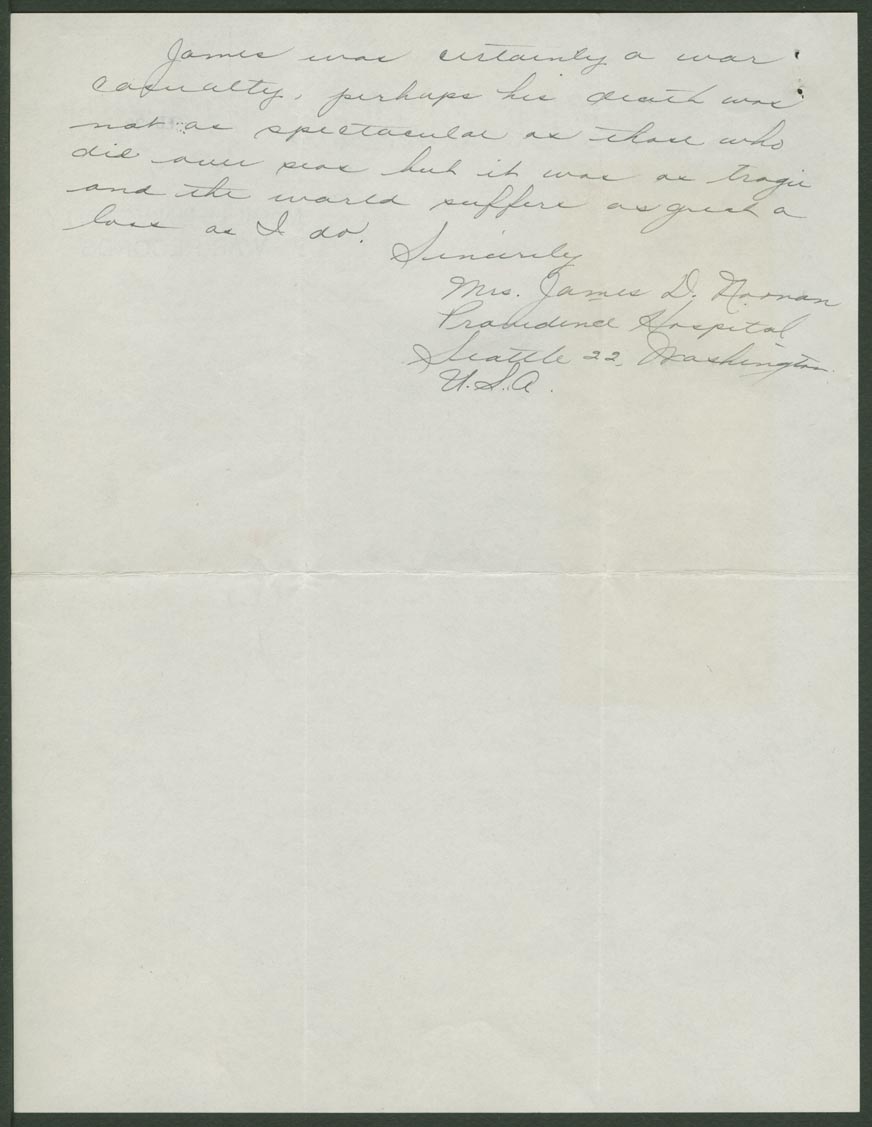 James was certainly a war
casualty, perhaps his death was
not as spectacular as those who
die over seas but it was as tragic
and the world suffers as great a
loss as I do.
Sincerely
Mrs. James D. Noonan
Providence Hospital
Seattle 22, Washington.
U.S.A.